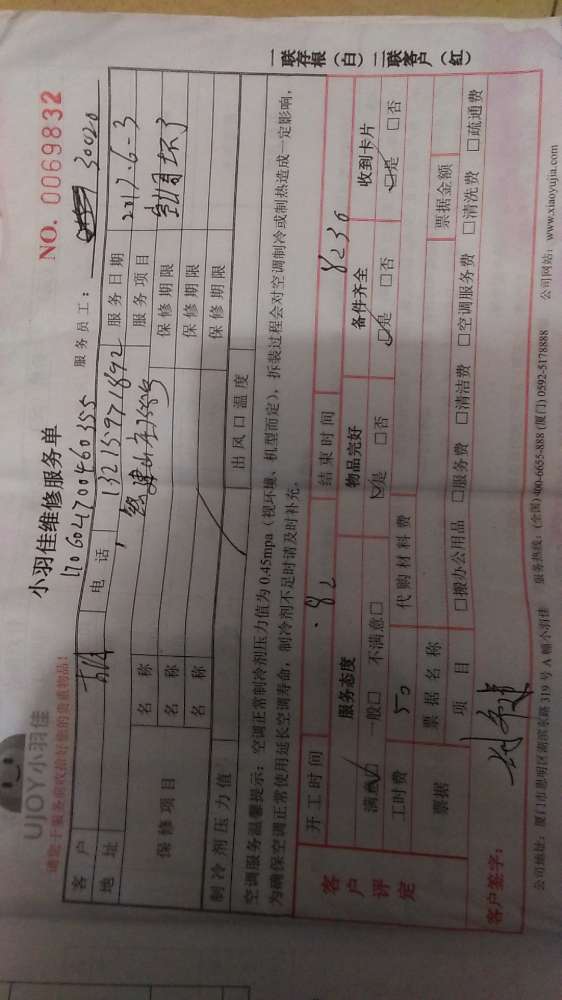 UJOY小羽佳
小羽佳维修服务单
NO. 0069832
请您于服务前收拾好您的贵重物品!
170604700460355 服务员工: 30020
客户 电话 13215971892 服务日期 2017.6-3
地址 服务项目
保修项目 名称 保修期限
名称 保修期限
名称 保修期限
制冷剂压力值 出风口温度
空调服务温馨提示: 空调正常制冷剂压力值为0.45mpa(视环境、机型而定),拆装过程会对空调制冷或制热造成一定影响,
为确保空调正常使用延长空调寿命,制冷剂不足时请及时补充。
客户评定 开工时间 结束时间
服务态度 物品完好 备件齐全 收到卡片
满意□ 一般□ 不满意□ □是 □否 □是 □否 □是 □否
工时费 50 代购材料费
票据 票据名称 票据金额
项目 □搬办公用品 □服务费 □清洁费 □空调服务费 □清洗费 □疏通费
客户签字:
公司地址: 厦门市思明区湖滨东路319号A幢小羽佳 服务热线: (全国) 400-6655-888 (厦门) 0592-5178888 公司网站: www.xiaoyujia.com
一联存根(白) 二联客户(红)